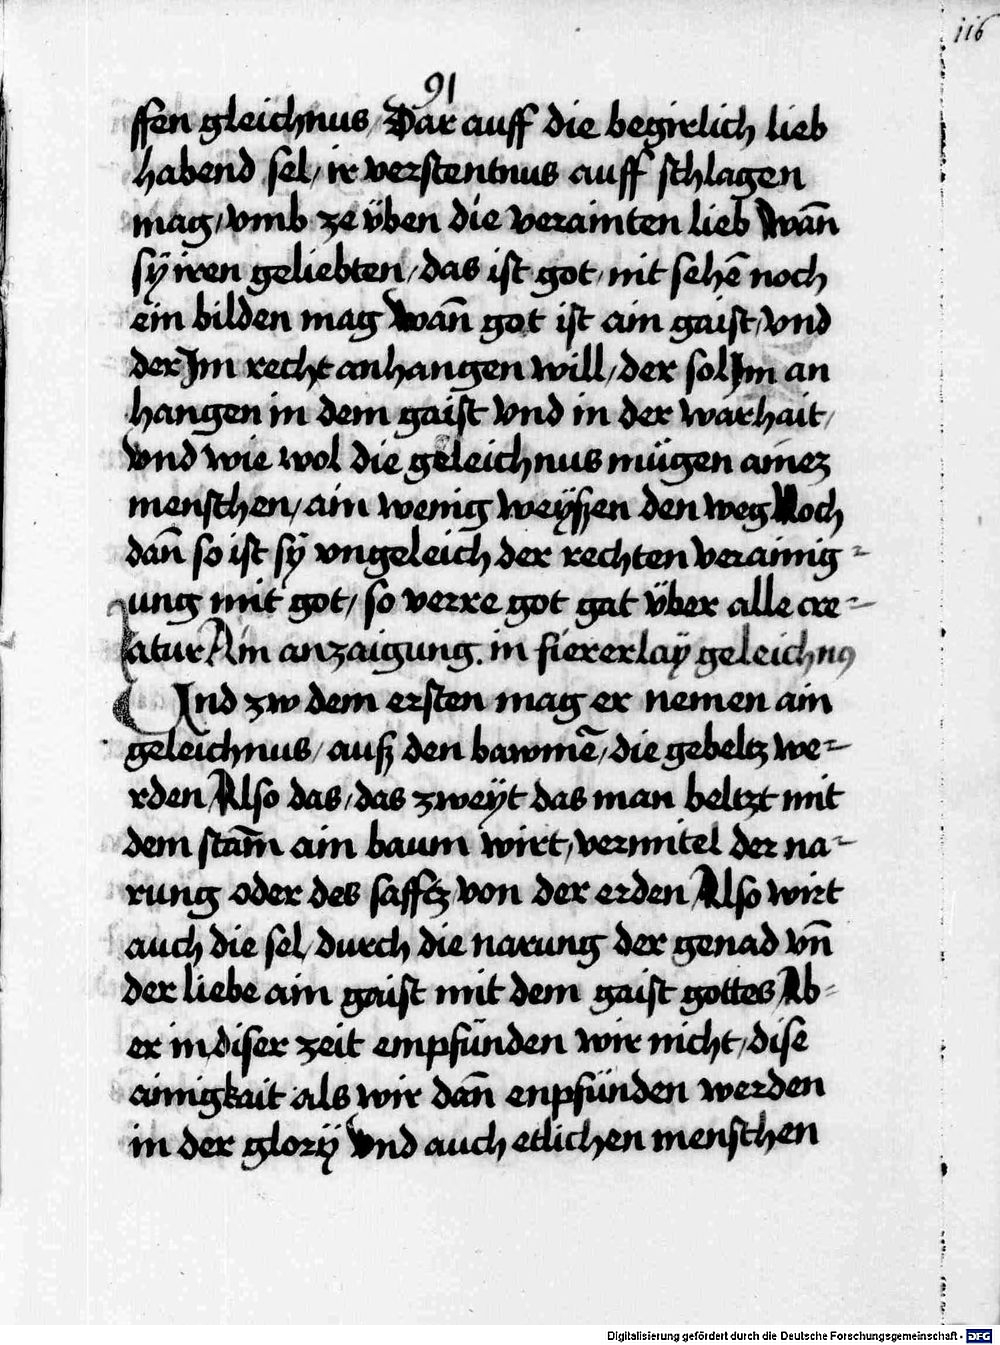 116
91
ffen gleichnus / Dar auff die begirlich lieb
habend sel / ir verstentnus auff schlagen
mag / vmb ze üben die verainten lieb Wañ
sÿ iren geliebten / das ist got / nit sehē noch
ein bilden mag Wañ got ist ain gaist / vnd
der Im recht anhangen will / der sol Im an
hangen in dem gaist vnd in der warhait /
Vnd wie wol die geleichnus mügen ainez
menschen / ain wenig weÿssen den weg Noch
dañ so ist sÿ vngeleich der rechten verainig=
ung mit got / so verre got gat über alle cre=
atur Ain anzaigung. in fiererlaÿ geleichnus
Und zw dem ersten mag er nemen ain
geleichnus / auß den bawmē / die gebeltz we=
rden Also das / das zweÿt das man beltzt mit
dem stam̄ ain baum wirt / vermitel der na=
rung oder des safftz von der erden Also wirt
auch die sel / durch die narung der genad vn̄
der liebe ain gaist mit dem gaist gottes Ab=
er in diser zeit empfünden wir nicht / dise
ainigkait als wir dañ enpfünden werden
in der glorÿ Vnd auch etlichen menschen
Digitalisierung gefördert durch die Deutsche Forschungsgemeinschaft - DFG